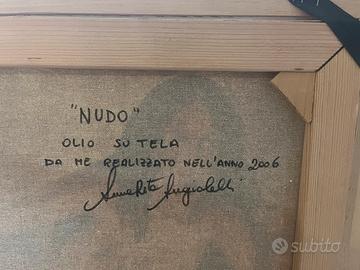 "NUDO"
OLIO SU TELA
DA ME REALIZZATO NELL'ANNO 2006
subito